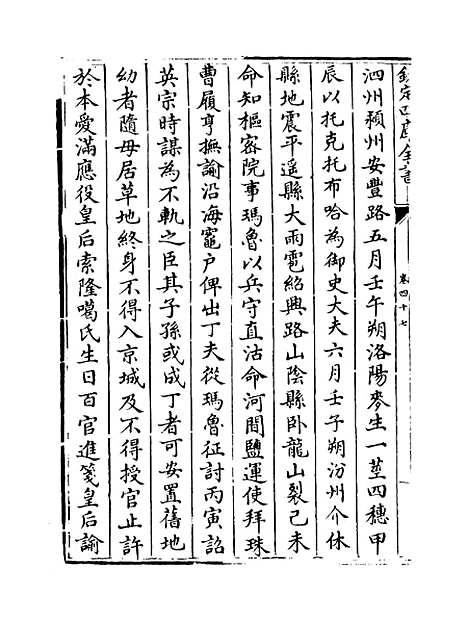 欽定四庫全書
卷四十七
泗州潁州安豐路五月壬午朔洛陽麥生一莖四穗甲
辰以托克托布哈為御史大夫六月壬子朔汾州介休
縣地震平遥縣大雨雹紹興路山陰縣卧龍山裂己未
命知樞宻院事瑪魯以兵守直沽命河間鹽運使拜珠
曹履亨撫諭沿海竈户俾出丁夫從瑪魯征討丙寅詔
英宗時謀為不軌之臣其子孫或成丁者可安置舊地
幼者隨母居草地終身不得入京城及不得授官止許
於本愛滿應役皇后索隆噶氏生日百官進箋皇后諭